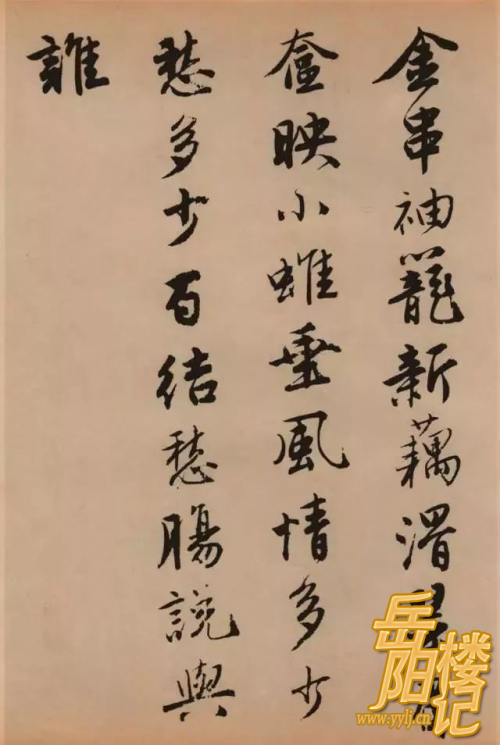 金串袖籠新藕滑
奩映小蜼垂風情多少
愁多少百結愁腸說與
誰
岳阳
楼记
www.yylj.cn